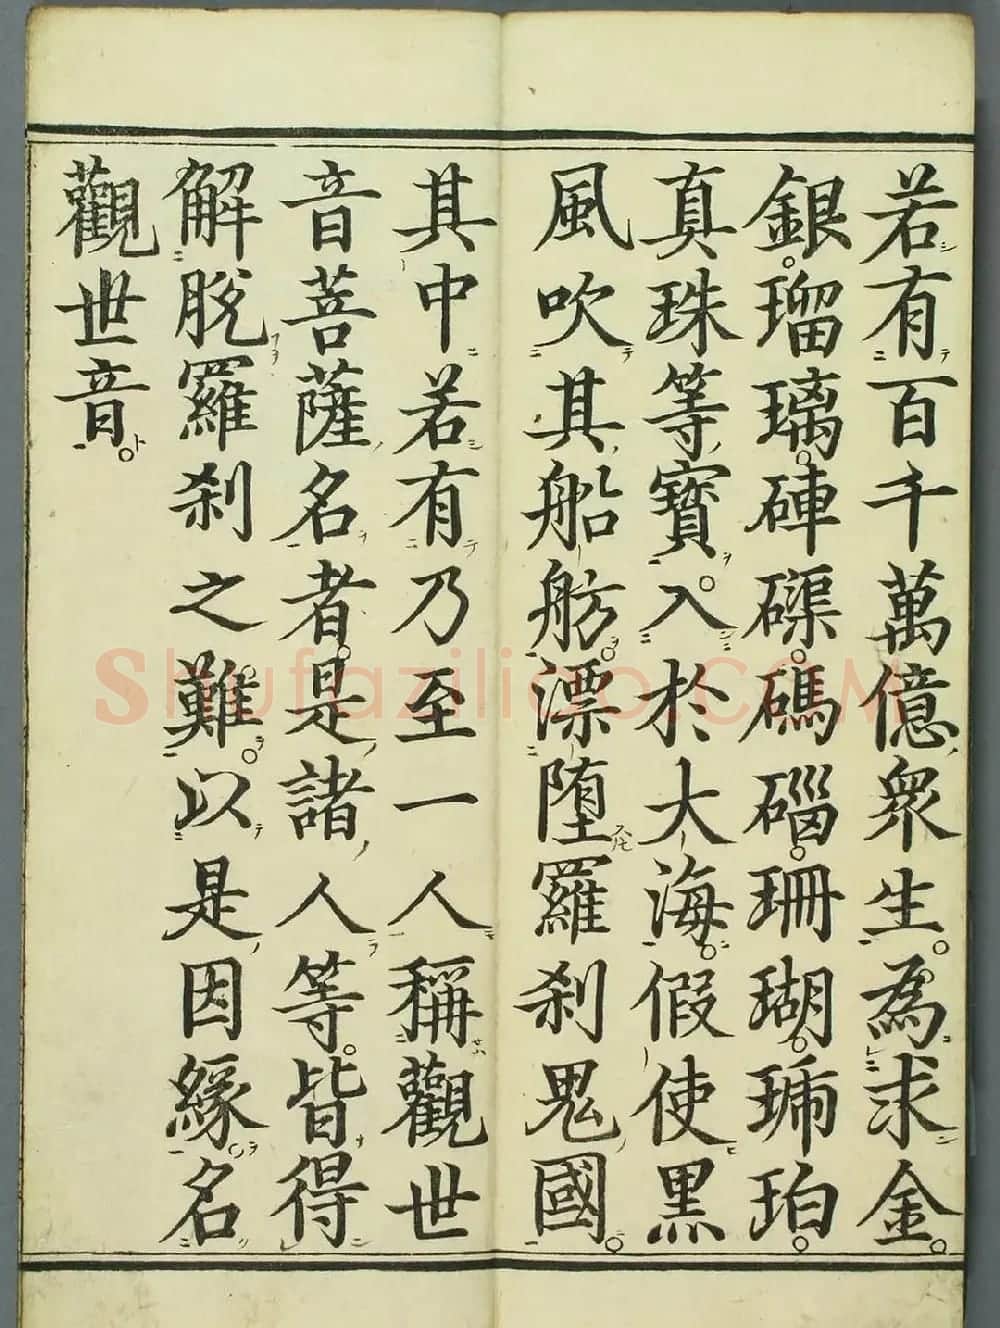 若有百千萬億衆生。為求金。
銀。瑠璃。硨磲。碼碯。珊瑚。琥珀。
真珠等寶。入於大海。假使黒
風吹其船舫。漂堕羅刹鬼國。
其中若有乃至一人稱觀世
音菩薩名者。是諸人等。皆得
解脱羅刹之難。以是因緣。名
觀世音。
Shufaziliao.COM